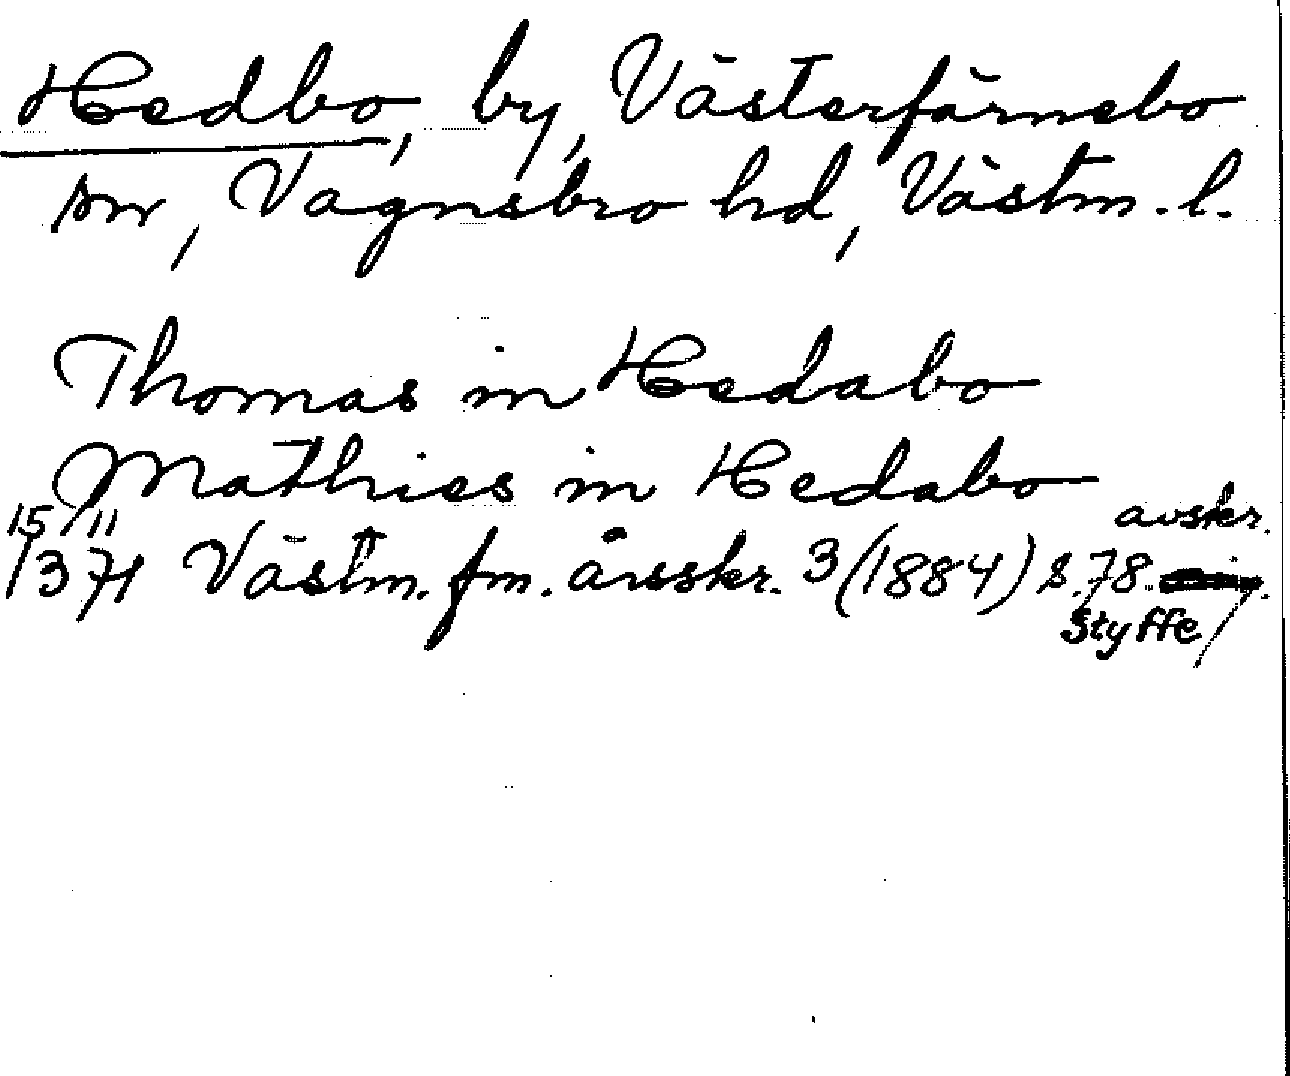 Hedbo, by, Västerfärnebo
sn, Vagnsbro hd, Västm. l.
Thomas in Hedabo
Mathies in Hedabo
15/11 avskr.
1371 Västm. fm. årsskr. 3 (1884) s. 78.
Styffe